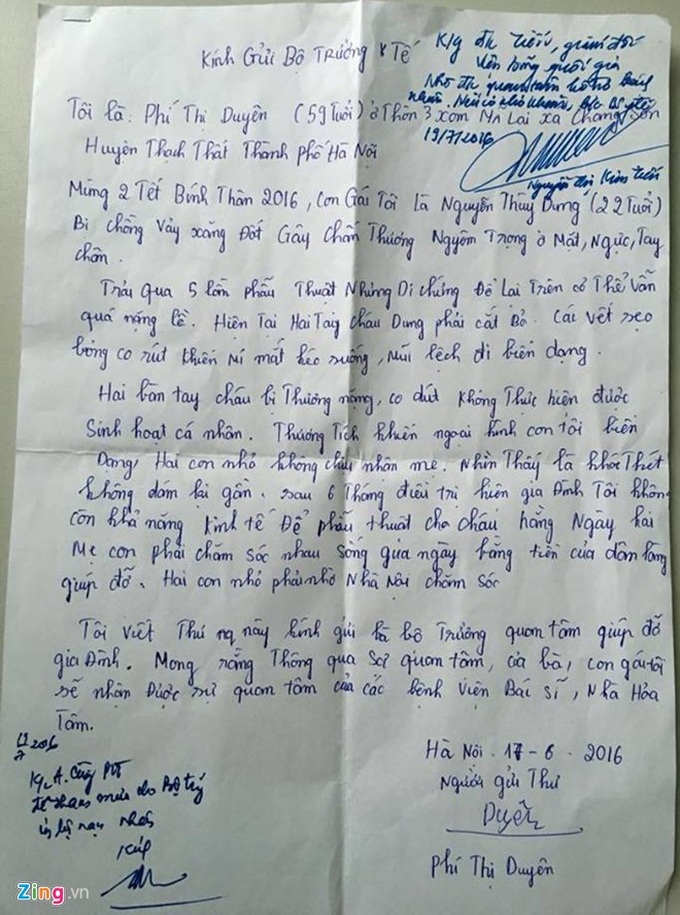 Kính Gửi Bộ Trưởng Y Tế
K/g đ/c Tiến, giám đốc
Viện bỏng quốc gia
Nhờ đ/c quan tâm hỗ trợ bệnh
nhân. Nếu có khó khăn, báo
19/7/2016
Nguyễn Thị Kim Tiến
Tôi là: Phí Thị Duyên (59 Tuổi) ở Thôn 3 xóm Mn Lai xã Chàng Sơn
Huyện Thạch Thất Thành Phố Hà Nội
Mùng 2 Tết Bính Thân 2016, Con Gái Tôi là Nguyễn Thùy Dung (22 Tuổi)
Bị chồng Vảy xăng Đốt Gây Chấn Thương Nghiêm Trọng ở Mặt, Ngực, Tay
chân.
Trải qua 5 lần phẫu Thuật Những Di chứng Để Lại Trên cơ Thể vẫn
quá nặng lề. Hiện Tại Hai Tai cháu Dung phải cắt Bỏ. Các vết sẹo
bỏng co rút khiến mí mắt kéo xuống, mũi lệch đi biến dạng.
Hai bàn tay cháu bị Thương nặng, co dút không Thực hiện được
Sinh hoạt cá nhân. Thương Tích khiến ngoại hình con tôi biến
Dạng, Hai con nhỏ không chịu nhận mẹ. Nhìn Thấy là khóc Thét
không dám lại gần. sau 6 Tháng điều trị hiện gia Đình Tôi không
còn khả năng kinh tế Để phẫu thuật cho cháu hằng Ngày hai
Mẹ con phải chăm sóc nhau sống qua ngày bằng tiền của dân làng
giúp đỡ. Hai con nhỏ phải nhờ Nhà Nội chăm sóc
Tôi Viết Thư này kính gửi bà bộ Trưởng quan tâm giúp đỡ
gia Đình. Mong rằng Thông qua Sự quan tâm, của bà, con gái tôi
sẽ nhận Được sự quan tâm của các bệnh viện Bác sĩ, Nhà Hảo
Tâm.
Hà Nội. 17-6-2016
Người gửi Thư
Duyên
Phí Thị Duyên
19/7 2016
K/g A.
để tham mưu cho Bộ trg
Zing.vn